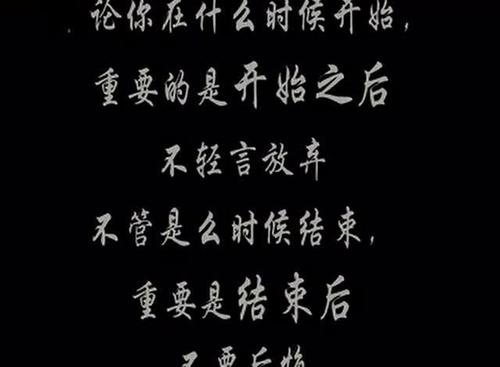 论你在什么时候开始，
重要的是开始之后
不轻言放弃
不管是么时候结束，
重要是结束后
不要后悔